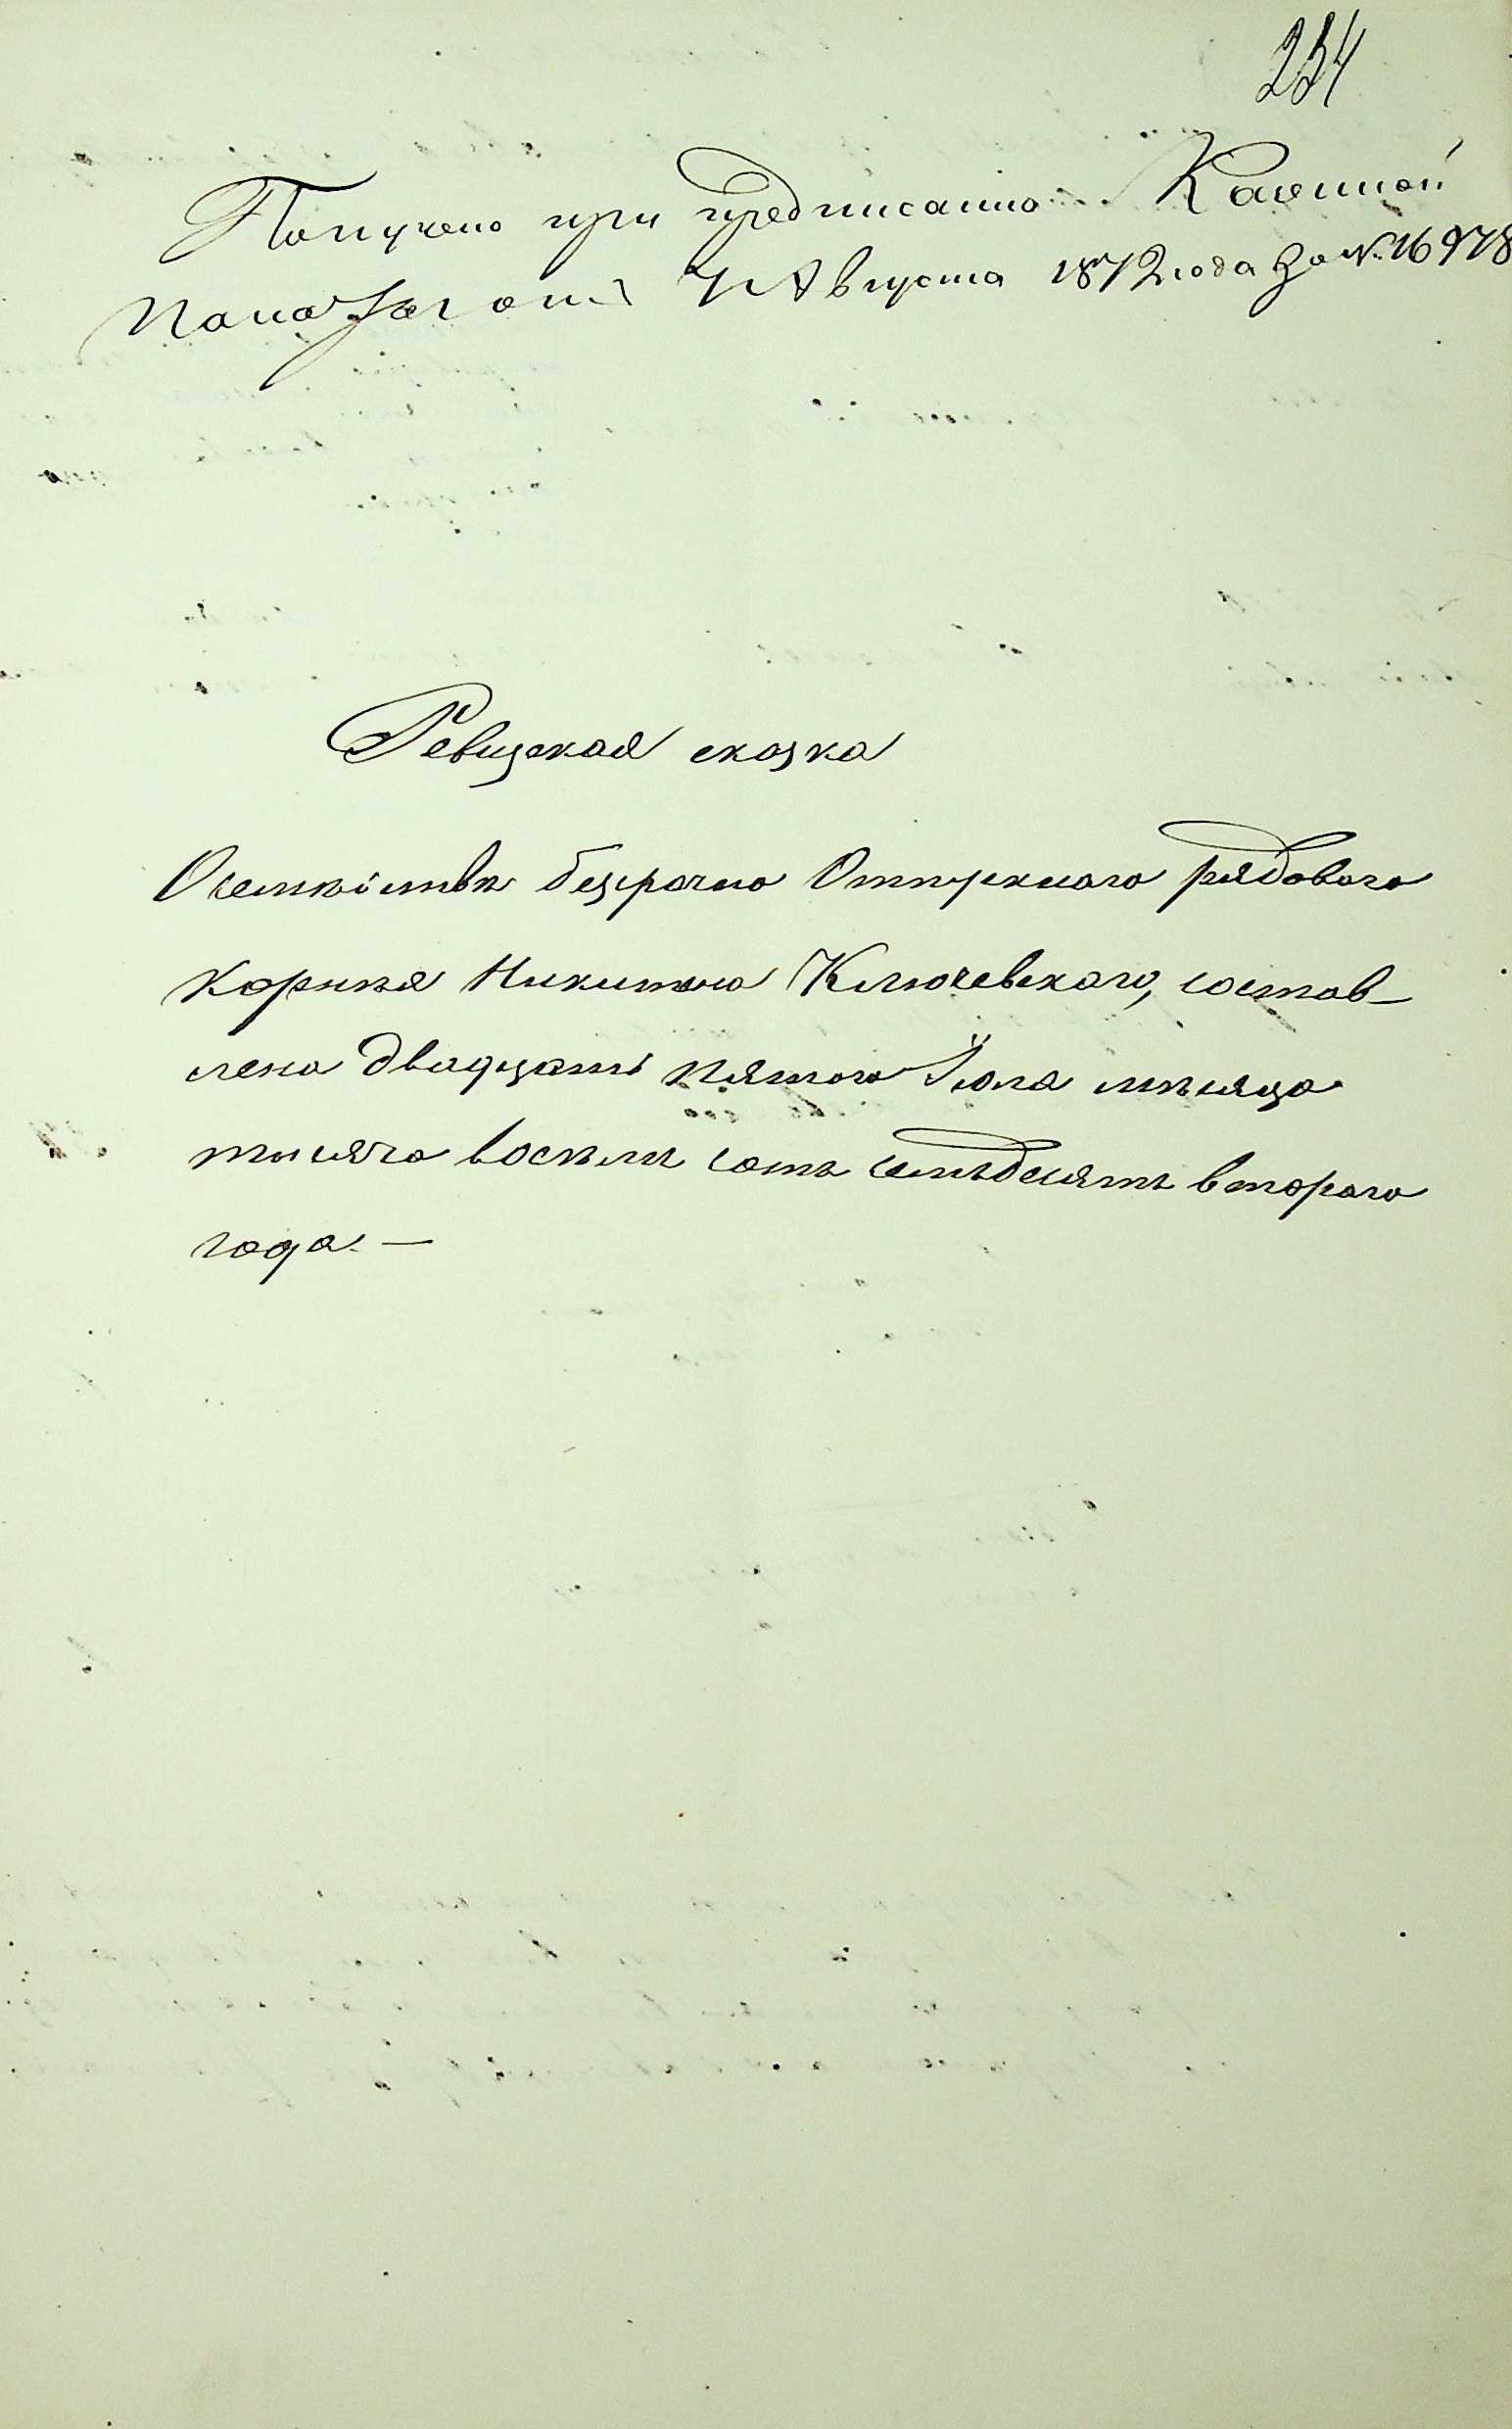 234
Получено при предписаніи Казенной
Палаты отъ 7 Августа 1872 года за № 16978
Ревизская сказка
О семѣіствѣ безсрочно Отпускного рядового
Корнѣя Никитина Ключевскаго, состав-
лена двадцать пятого Іюля мѣсяца
тысяча восѣмъ сотъ семьдесятъ второго
года. —